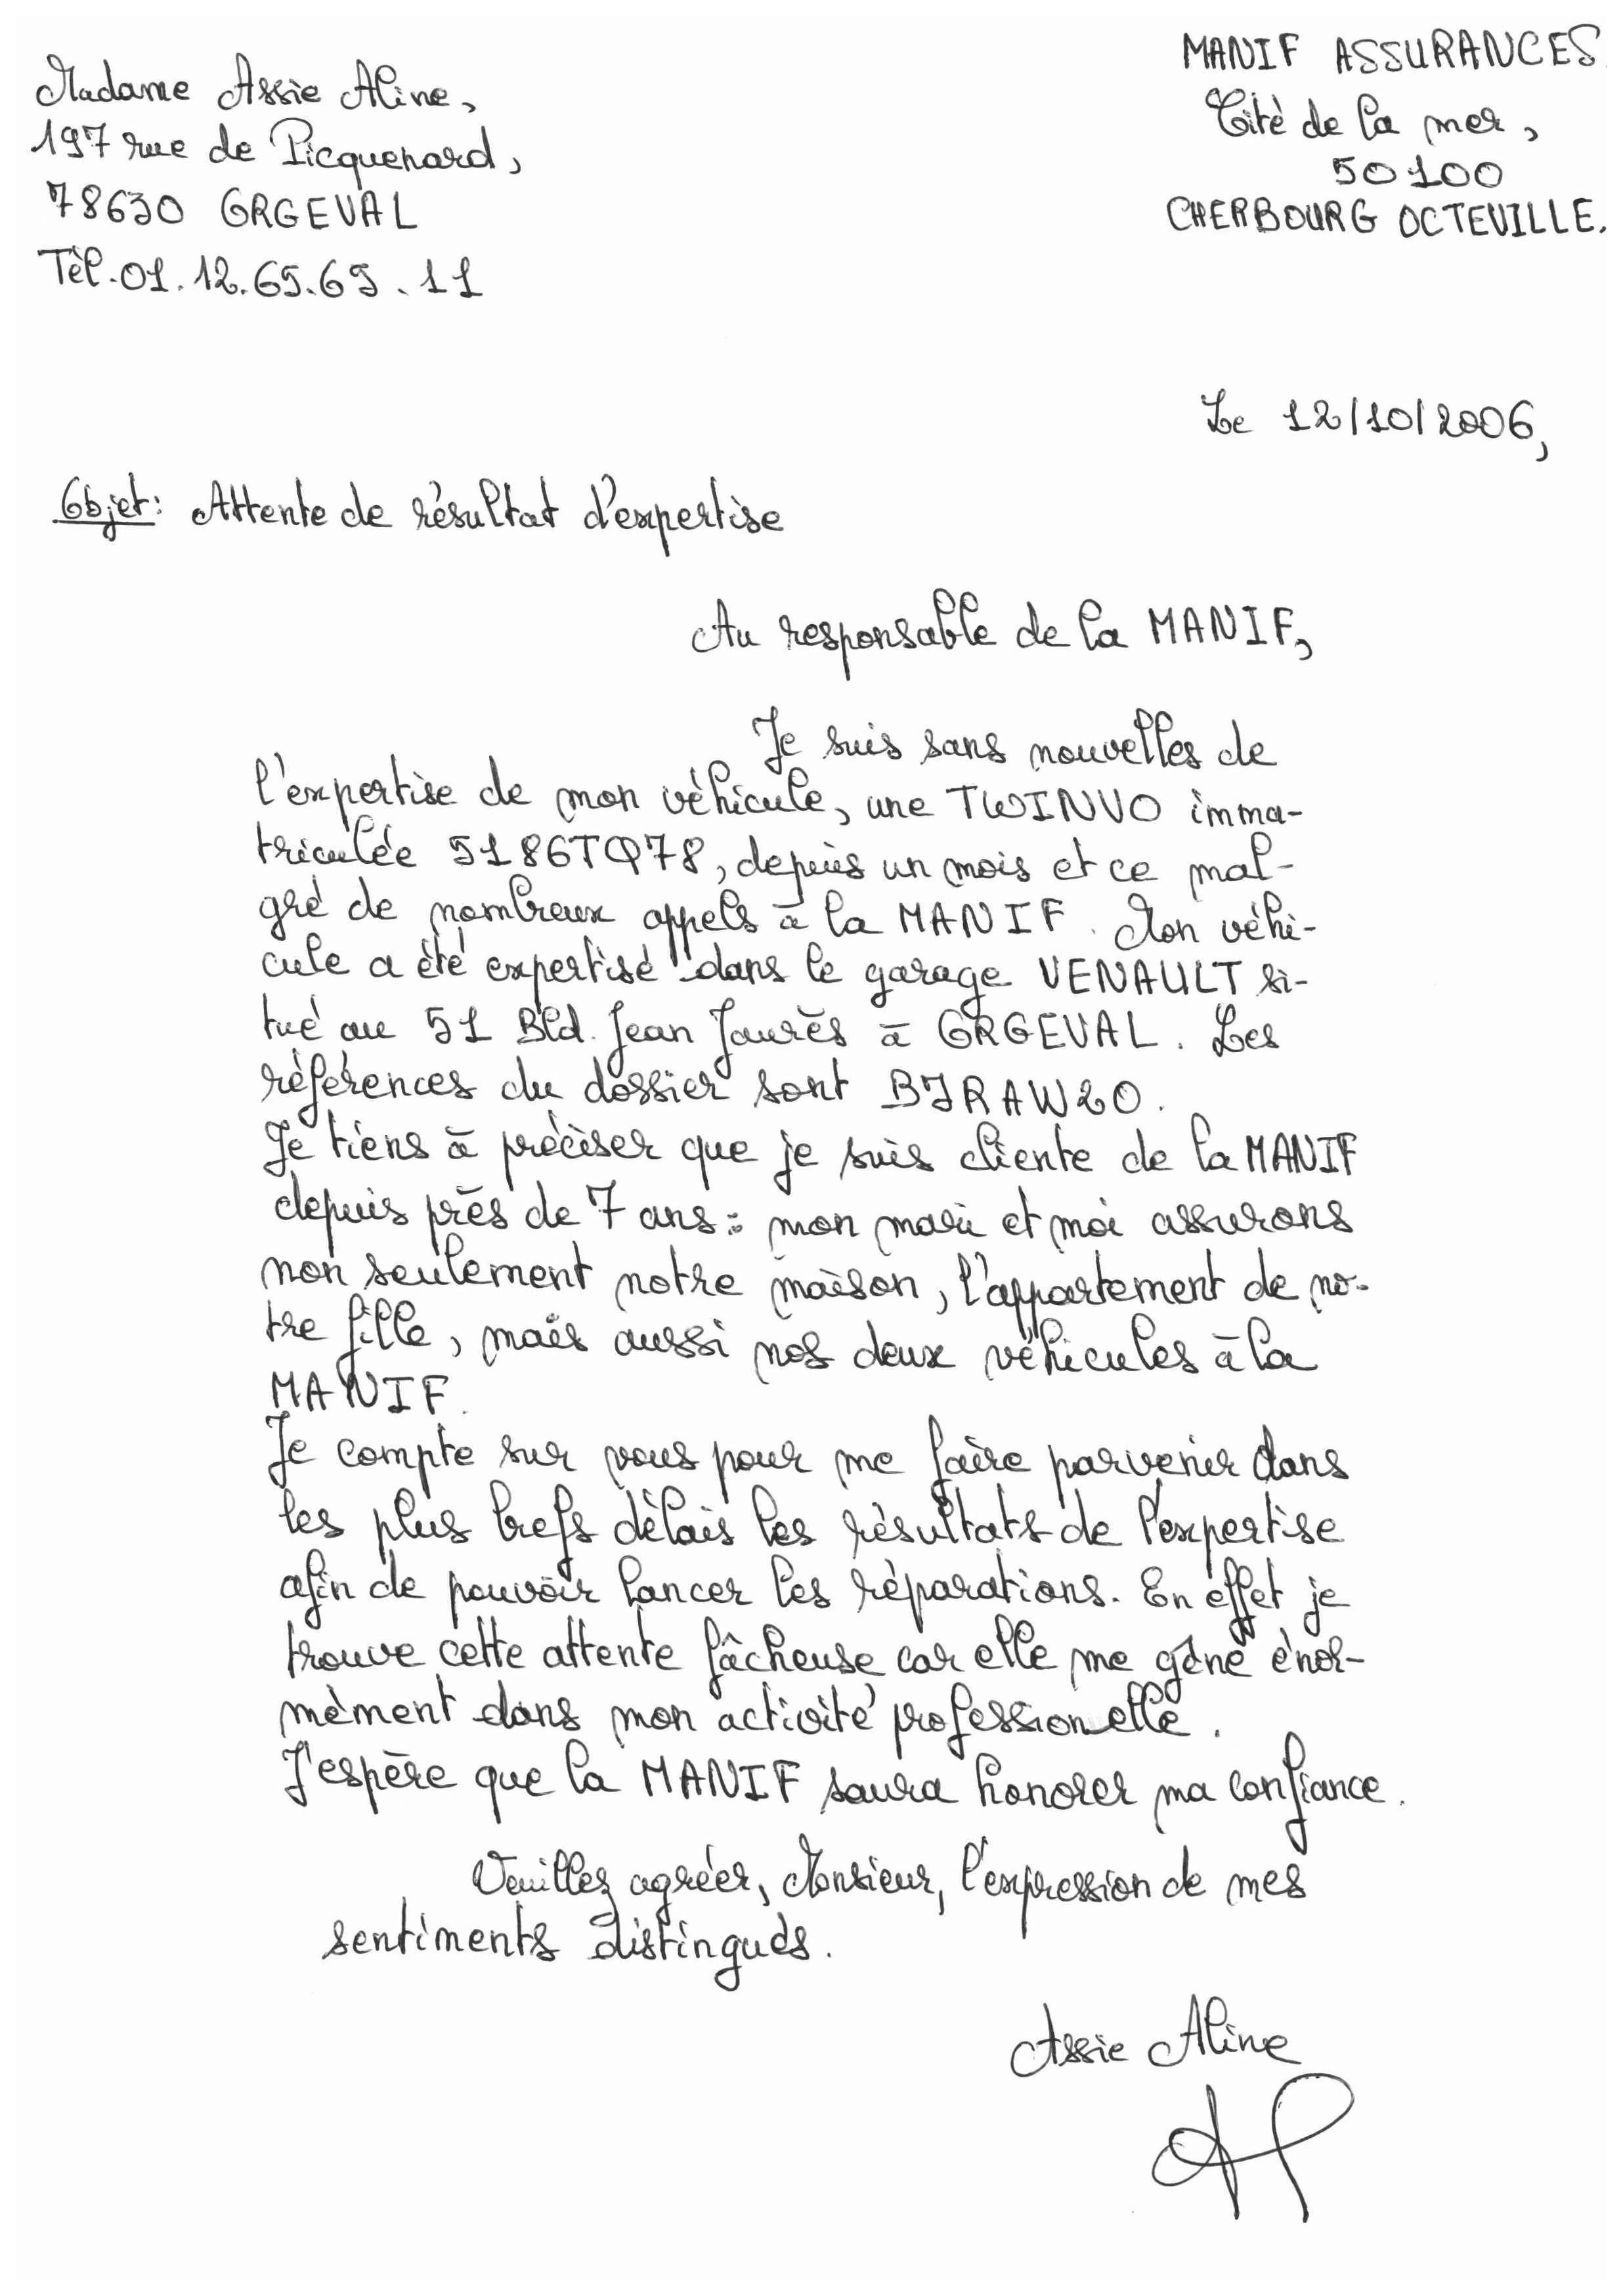 Madame Assie Aline,
197 rue de Picquenard,
78630 ORGEVAL
Tél. 01.12.65.69.11
MANIF ASSURANCES
Cité de la mer,
50100
CHERBOURG OCTEVILLE.
Le 12/10/2006,
Objet: Attente de résultat d'expertise
Au responsable de la MANIF,
Je suis sans nouvelles de
l'expertise de mon véhicule, une TWINVO imma-
triculée 5186TQ78, depuis un mois et ce mal-
gré de nombreux appels à la MANIF. Mon véhi-
cule a été expertisé dans le garage VENAULT si-
tué au 51 Bld. Jean Jaurès à ORGEVAL. Les
références du dossier sont BJRAW20.
Je tiens à préciser que je suis cliente de la MANIF
depuis près de 7 ans: mon mari et moi assurons
non seulement notre maison, l'appartement de no-
tre fille, mais aussi nos deux véhicules à la
MANIF.
Je compte sur vous pour me faire parvenir dans
les plus brefs délais les résultats de l'expertise
afin de pouvoir lancer les réparations. En effet je
trouve cette attente fâcheuse car elle me gêne énor-
mément dans mon activité professionnelle.
J'espère que la MANIF saura honorer ma confiance.
Veuillez agréer, Monsieur, l'expression de mes
sentiments distingués.
Assie Aline